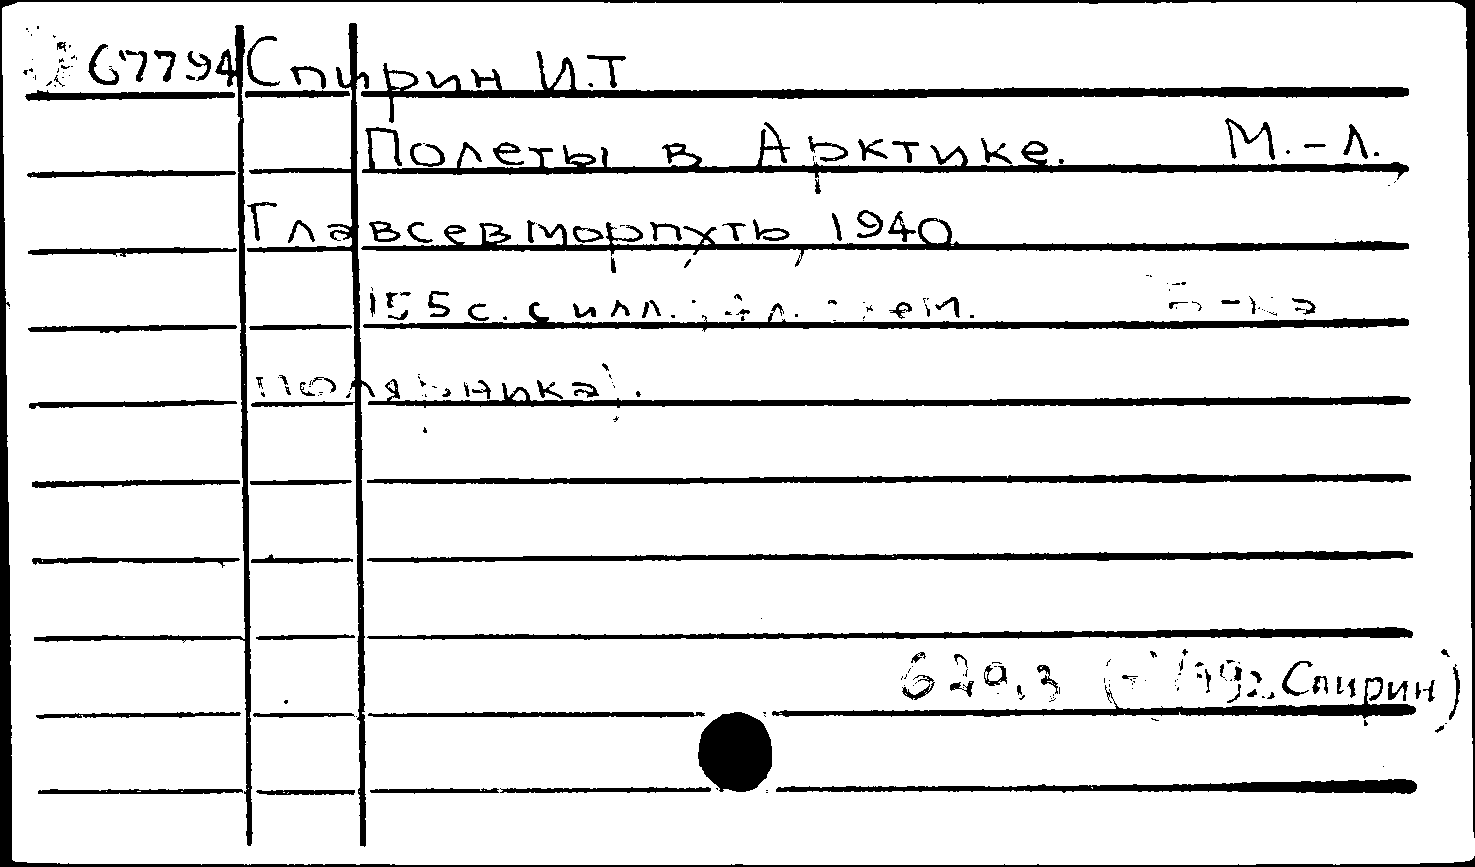 67794 Спирин И.Т
Полеты в Арктике. М.-Л.
Главсевморпуть, 1940
155 с. с илл. ; л. схем. Б-ка
полярника).
629.3 Спирин)